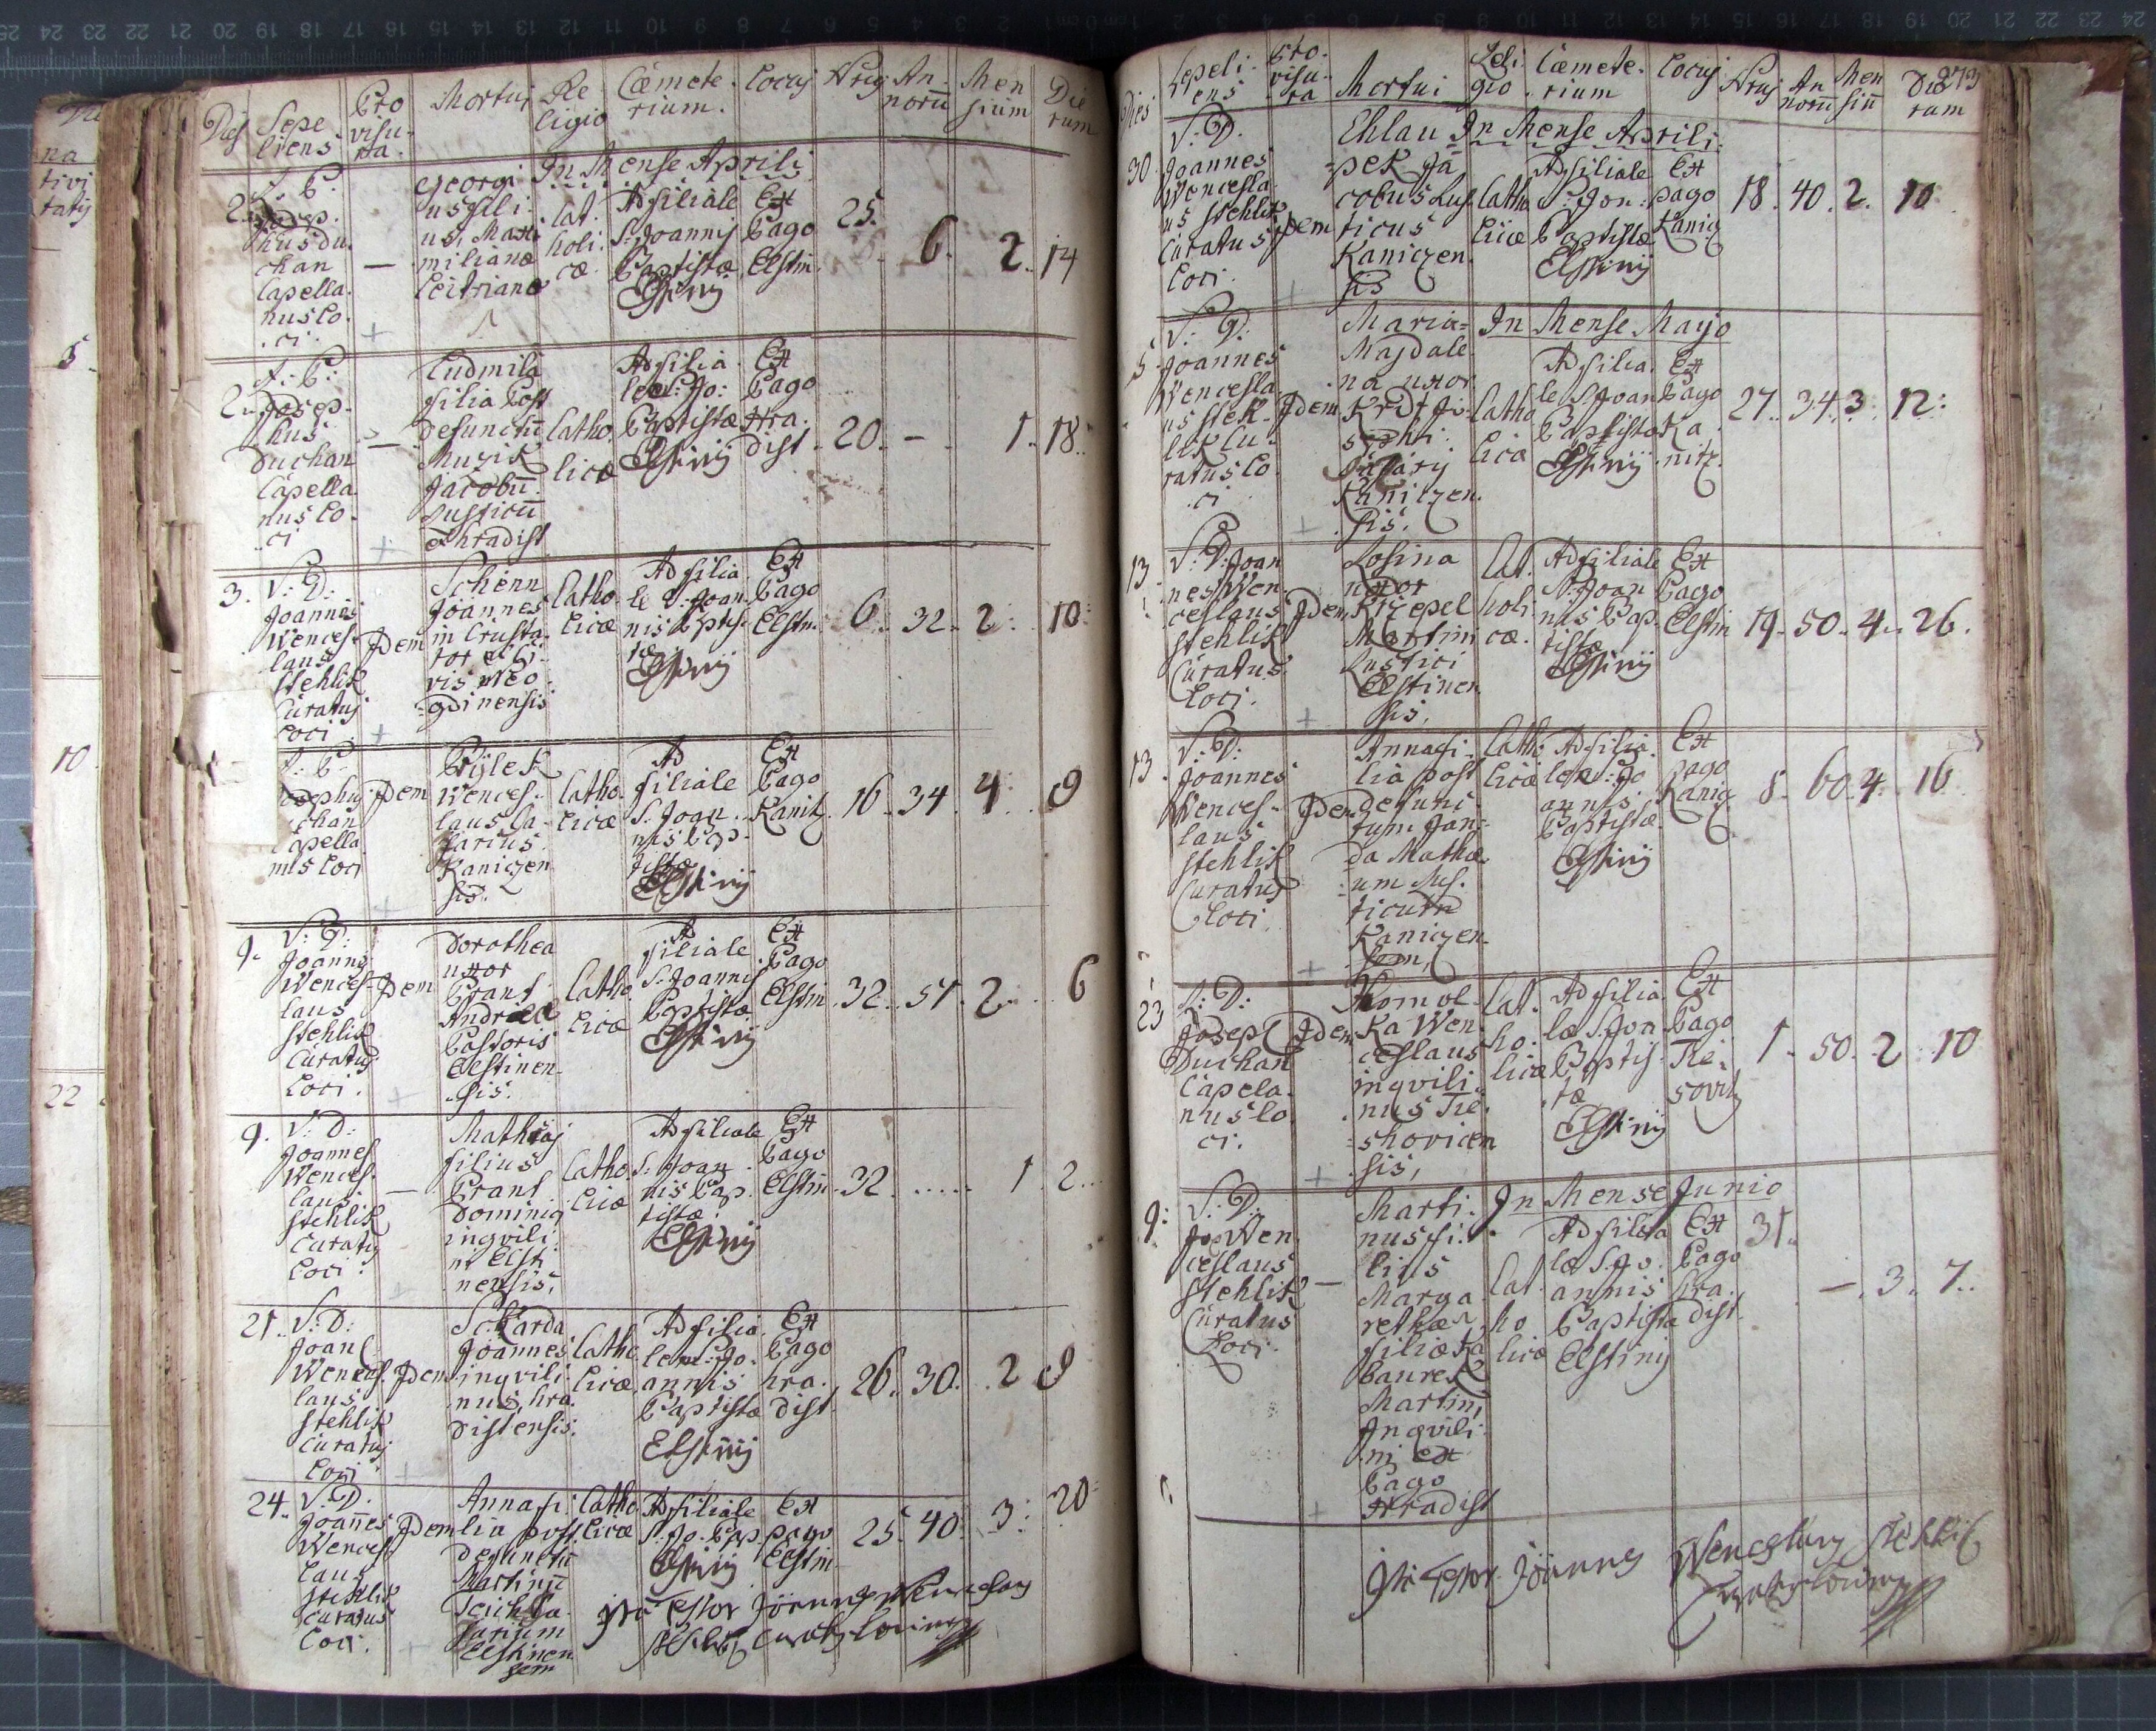 Dies
Sepe
liens
Pro
visu-
ra.
Mortui
Re
ligio
Cæmete.
rium.
Locus
Nrus
An-
norū
Men
sium
Die
rum
In Mense Aprili
2.
Josep.
hus Du.
chan
Capella.
nus Lo.
ci.
—
Georgi
us fili.
us, Maxi
miliana
Cat.
holi.
cæ.
Ad filiale
S. Joannis
Baptistæ
Elstinij
Ex
Pago
Elstin.
25.
6.
2.
14
2.
Josep.
hus
Duchan
Capella.
nus Lo.
ci
—
Ludmila
filia Post
Defunctū
Muzik
Jacobū.
Rusticū
Hradist
Catho.
licæ
Ad filia.
le S: Jo:
Baptistæ
Elstinij
Ex
Pago
Hra.
dist.
20.
—
1.
18.
3.
V: D:
Joannes
Wences-
laus
Stehlik
Curatus
Loci
Idem
Schenn
Joannes
Catho.
licæ
Ad filia.
le S: Joan.
nis Bptis.
Elstinij
Ex
Pago
Elstin.
6.
32.
2.
10.
Josephus
chan
Capella
nus Loci
Idem
Wences-
laus
Kaniczen
sis.
Catho.
licæ
Ad
filiale
S. Joan.
nis Bap.
tistæ
Elstinij
Ex
Pago
Kanitz.
16.
34.
4.
9
9.
V: D:
Joannes
Wences-
laus
Stehlik
Curatus
Loci.
Idem
Dorothea
uxor
Brant
Andreæ
Pastoris
Elstinen.
sis.
Catho.
licæ
Ad
filiale
S. Joannis
Baptistæ
Elstinij
Ex
Pago
Elstin.
32.
51.
2.
6
9.
V: D:
Joannes
Wences.
laus
Stehlik
Curatus
Loci
—
Mathias
filius
Brant
Dominici
inqvili.
ni Elsti
nensis,
Catho.
licæ
Ad filiale
S: Joan.
nis Bap.
tistæ.
Elstinij
Ex
Pago
Elstin.
32.
1
2.
21.
V: D:
Joan
Wences.
laus
Stehlik
Curatus
Loci
Idem
Joannes
inqvili.
nus, Hra.
distensis.
Catho.
licæ
Ad filia.
le S: Jo.
annis
Baptistæ
Elstinij
Ex
Pago
Hra.
dist.
26.
30.
2
9
24.
V: D.
Joañes
Wences
laus
Stehlik
Curatus
Loci.
Idem
Anna fi.
lia post.
Defunctū
Martinū
Elstinen
sem
Catho.
licæ
Ad filiale
S. Jo. Bap.
Elstinij
Ex
pago
Elstin
25.
40.
3.
20.
Ita Testor Joannes Wenceslaus
Stehlik Curatus Loci
Dies
Sepeli-
ens
Pro-
visu-
ra
Mortui
Reli
gio
Cæmete.
rium
Locus
Nrus
An
norū
Men
siū
Die
rum
273
In Mense Aprili.
30.
V: D.
Joannes
Wencesla.
us Stehlik
Curatus
Loci.
Idem
Chlau
pek Ja
cobus Rus
ticus
Kaniczen.
sis
Catho
licæ
Ad filiale
S: Jon:
Baptistæ
Elstinij
Ex
pago
Kanicz
18.
40.
2.
10
In Mense Mayo
5.
V: D:
Joannes
Wencesla
us Steh.
lik Cu.
ratus Lo.
ci
Idem
Maria-
Majdale.
na uxor
Kaniczen.
sis.
Catho
licæ
Ad filia.
le S Joan
Baptistæ
Elstinij
Ex
Pago
Ka.
nitz.
27.
34.
3.
12:
13.
V: D: Joan
nes Wen
ceslaus
Stehlik
Curatus
Loci.
Idem
Rosina
uxor
Martini
Rustici
Elstinen
sis.
Cat.
holi
cæ.
Ad filiale
S. Joan
nis Bap.
tistæ
Elstinij
Ex
Pago
Elstin
19.
50.
4.
26.
13.
V: D:
Joannes
Wences-
laus
Stehlik
Curatus
Loci.
Idem
Anna fi.
lia post
defunc.
tum Jan-
da Mathæ.
um Rus.
ticum
Kaniczen.
sem,
Catho
licæ
Ad filia.
le S: Jo
annis.
Baptistæ.
Elstinij
Ex
pago
Kanicz
8.
60.
4.
16
23
Josep
Duchan
Capela.
nus Lo.
ci.
Idem
Homol.
ka Wen.
ceslaus
inqvili.
nus Tie.
shovicen
sis,
Cat.
ho.
licæ
Ad filia.
le S. Jon
Baptis.
tæ
Elstinij
Ex
Pago
Tie.
sovitz
1.
50.
2.
10
In Mense Junio
9:
V: D:
Jo: Wen
ceslaus
Stehlik
Curatus
Loci.
—
Marti.
nus fi.
lius
Marga
rethæ,
filiæ Ka
banrek
Martini
Inqvili.
ni ex
Pago
Hradist
Cat.
ho
licæ
Ad filia
le S. Jo.
annis
Baptista
Elstiny
Ex
Pago
Hra.
dist.
31.
—
3.
7.
Ita Testor Joannes Wenceslaus Stehlik
Curatus Loci
5
10
22